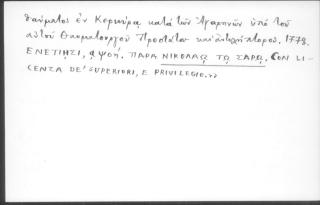 θαύματος ἐν Κορκύρᾳ κατὰ τῶν Ἀγαρηνῶν ὑπὸ τοῦ
αὐτοῦ Θαυματουργοῦ Προστάτου καὶ ἀντιλήπτορος. 1778.
ΕΝΕΤΙΗΣΙ, ͵αψοή. ΠΑΡΑ ΝΙΚΟΛΑῼ Τῼ ΣΑΡῼ. CON LI-
CENZA DE' SUPERIORI, E PRIVILEGIO.»